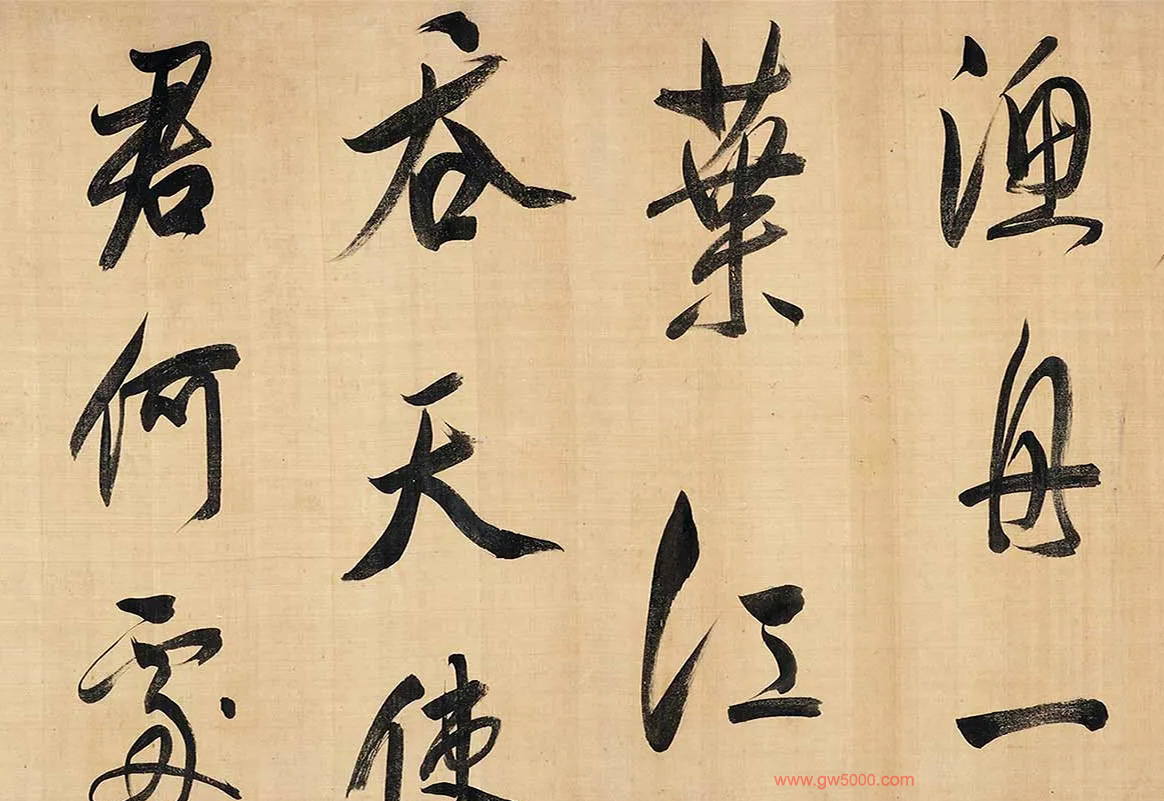 漁舟一
葉江
吞天使
君何處
www.gw5000.com